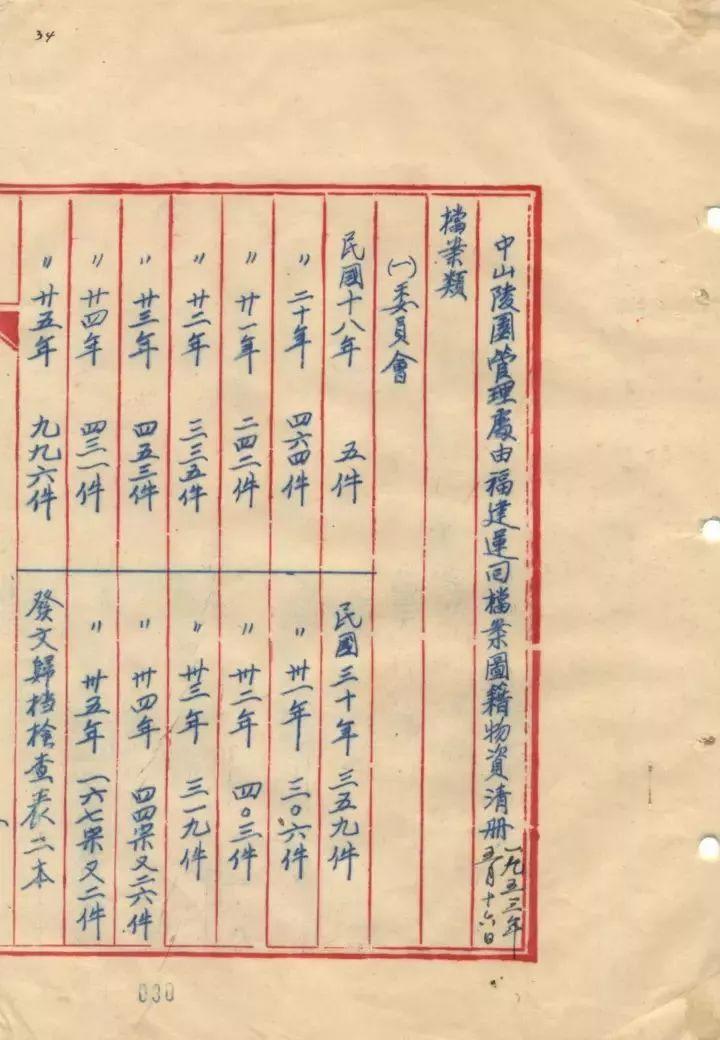 34
中山陵園管理處由福建運回檔案圖籍物資清册 一九五三年五月十六日
檔案類
(一)委員會
民國十八年 五件
〃 二十年 四六四件
〃 廿一年 二四二件
〃 廿二年 三三五件
〃 廿三年 四五三件
〃 廿四年 四三一件
〃 廿五年 九九六件
民國三十年 三五九件
〃 卅一年 三〇六件
〃 卅二年 四〇三件
〃 卅三年 三一九件
〃 卅四年 四四案又二六件
〃 卅五年 一六七案又二件
發文歸档檢查表二本
030